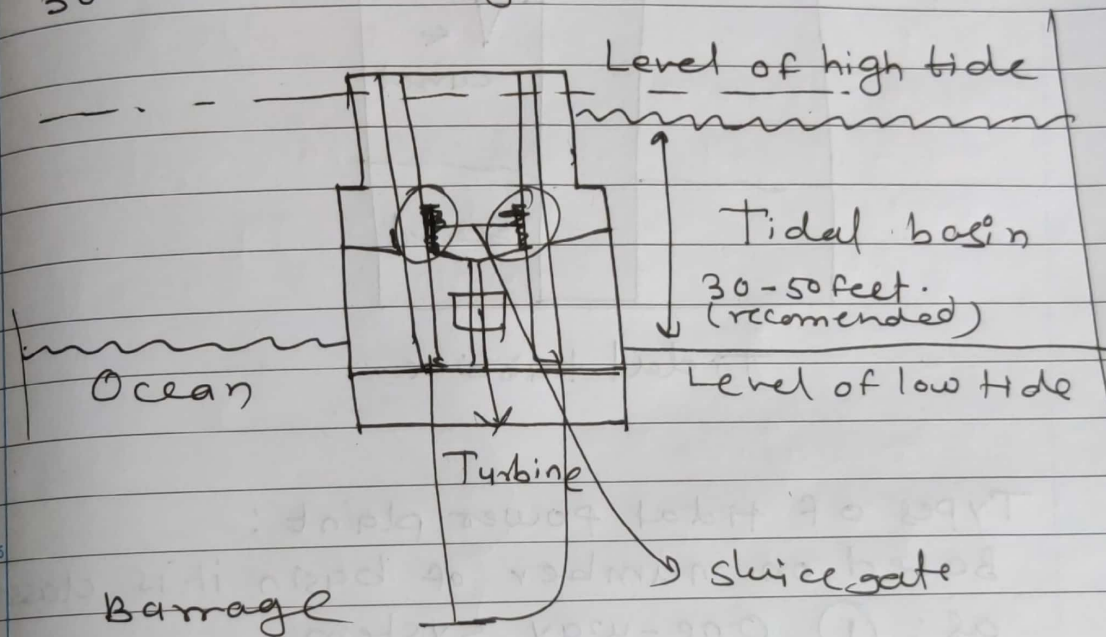 Level of high tide
Tidal basin
30-50 feet.
(recomended)
Ocean
Level of low tide
Turbine
Sluice gate
Barrage